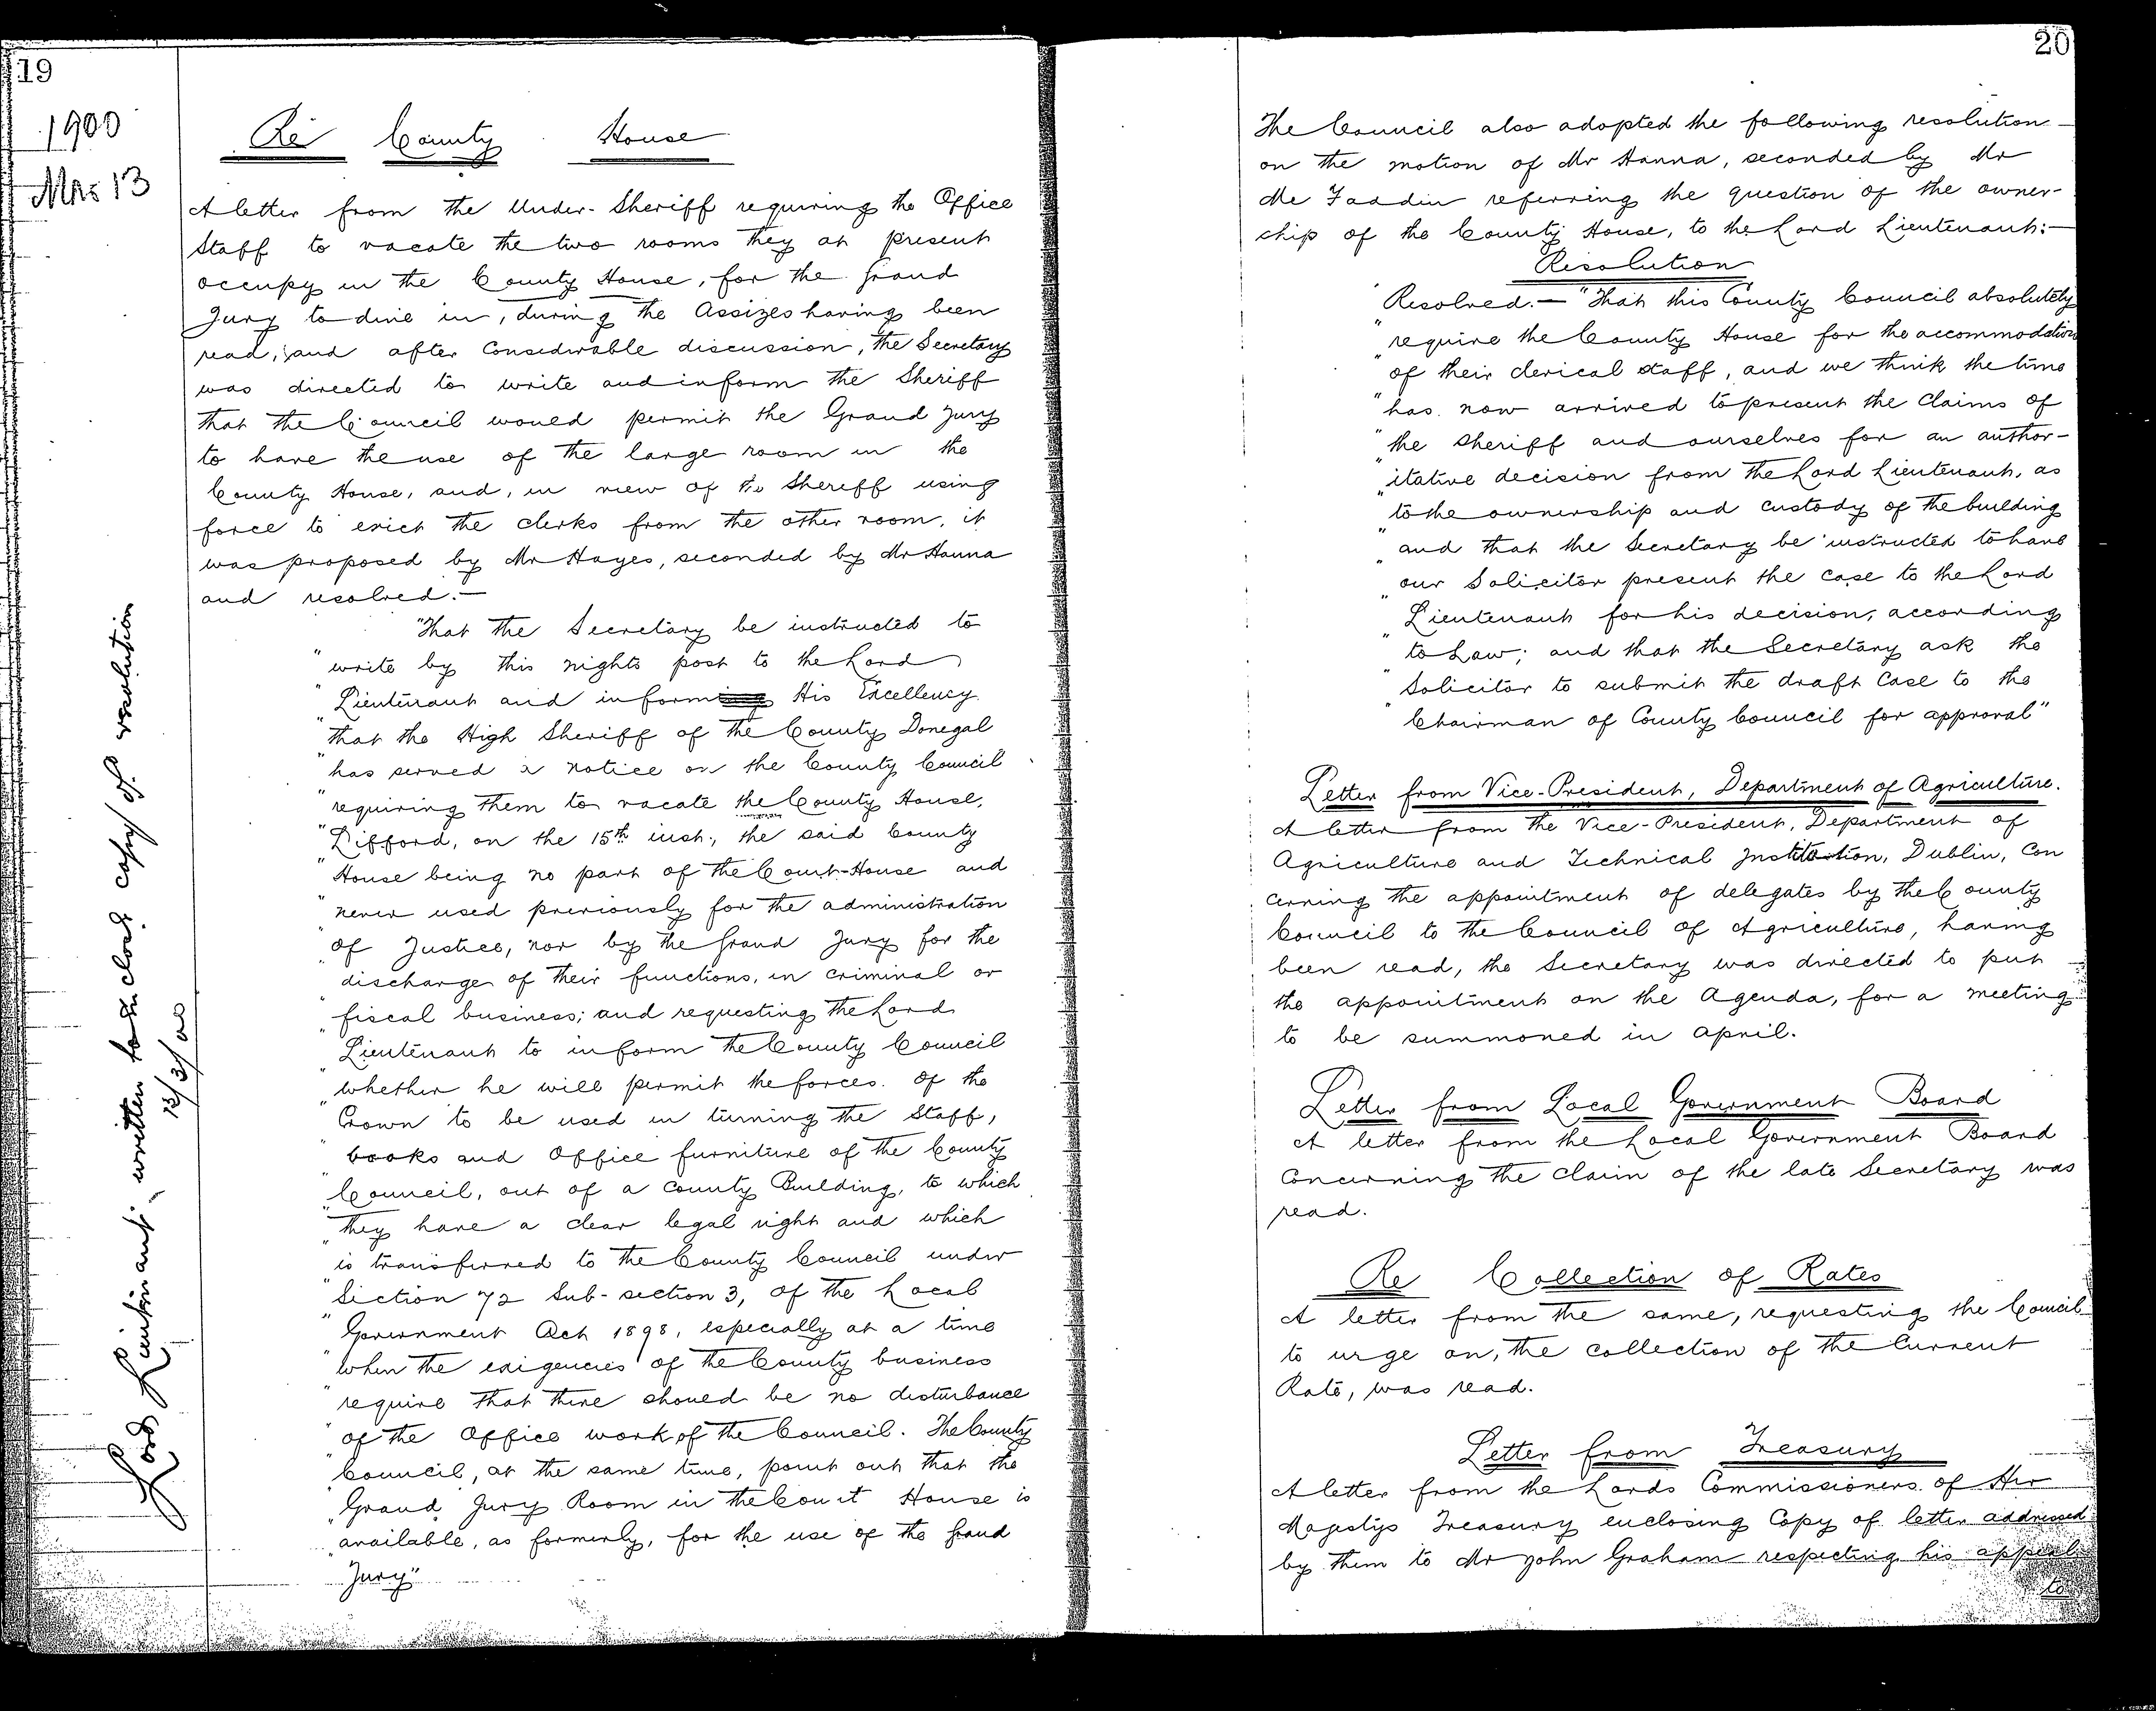 19
1900
Mar 13
Re County House
A letter from the Under-Sheriff requiring the Office
Staff to vacate the two rooms they at present
occupy in the County House, for the Grand
Jury to dine in, during the Assizes having been
read, and after considerable discussion, the Secretary
was directed to write and inform the Sheriff
that the Council would permit the Grand Jury
to have the use of the large room in the
County House, and, in view of the Sheriff using
force to evict the clerks from the other room, it
was proposed by Mr Hayes, seconded by Mr Hanna
and resolved:—
"That the Secretary be instructed to
"write by this nights post to the Lord
"Lieutenant and inform His Excellency
"that the High Sheriff of the County Donegal
"has served a notice on the County Council
"requiring them to vacate the County House,
"Lifford, on the 15th inst., the said County
"House being no part of the Court-House and
"never used previously for the administration
"of Justice, nor by the Grand Jury for the
"discharge of their functions, in criminal or
"fiscal business; and requesting the Lord
"Lieutenant to inform the County Council
"whether he will permit the forces of the
"Crown to be used in turning the Staff,
"books and Office furniture of the County
"Council, out of a County Building, to which
"they have a clear legal right and which
"is transferred to the County Council under
"Section 72 Sub-section 3, of the Local
"Government Act 1898, especially at a time
"when the exigencies of the County business
"require that there should be no disturbance
"of the Office work of the Council. The County
"Council, at the same time, point out that the
"Grand Jury Room in the Court House is
"available, as formerly, for the use of the Grand
Jury"
Lord Lieutenant written to enclosg copy of resolution
13/3/00
20
The Council also adopted the following resolution—
on the motion of Mr Hanna, seconded by Mr
Mc Faddin referring the question of the owner-
ship of the County House, to the Lord Lieutenant:—
Resolution
Resolved.— "That this County Council absolutely
"require the County House for the accommodation
"of their clerical staff, and we think the time
"has now arrived to present the claims of
"the Sheriff and ourselves for an author-
"itative decision from the Lord Lieutenant, as
"to the ownership and custody of the building
"and that the Secretary be instructed to have
"our Solicitor present the case to the Lord
"Lieutenant for his decision, according
"to Law; and that the Secretary ask the
"Solicitor to submit the draft Case to the
"Chairman of County Council for approval"
Letter from Vice-President, Department of Agriculture.
A letter from the Vice-President, Department of
Agriculture and Technical Institution, Dublin, con
cerning the appointment of delegates by the County
Council to the Council of Agriculture, having
been read, the Secretary was directed to put
the appointment on the Agenda, for a meeting
to be summoned in April.
Letter from Local Government Board
A letter from the Local Government Board
concerning the claim of the late Secretary was
read.
Re Collection of Rates
A letter from the same, requesting the Council
to urge on, the collection of the Current
Rate, was read.
Letter from Treasury
A letter from the Lords Commissioners of Her
Majestys Treasury enclosing Copy of letter addressed
by them to Mr John Graham respecting his appeal
to